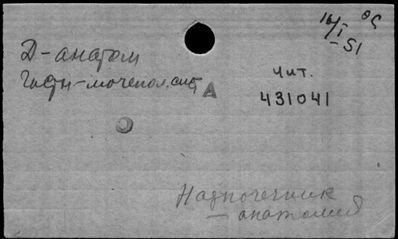 16/I-51
Д-анатом
-мочепол. сист
А
Чит.
431041
Надпочечник
- анатомия